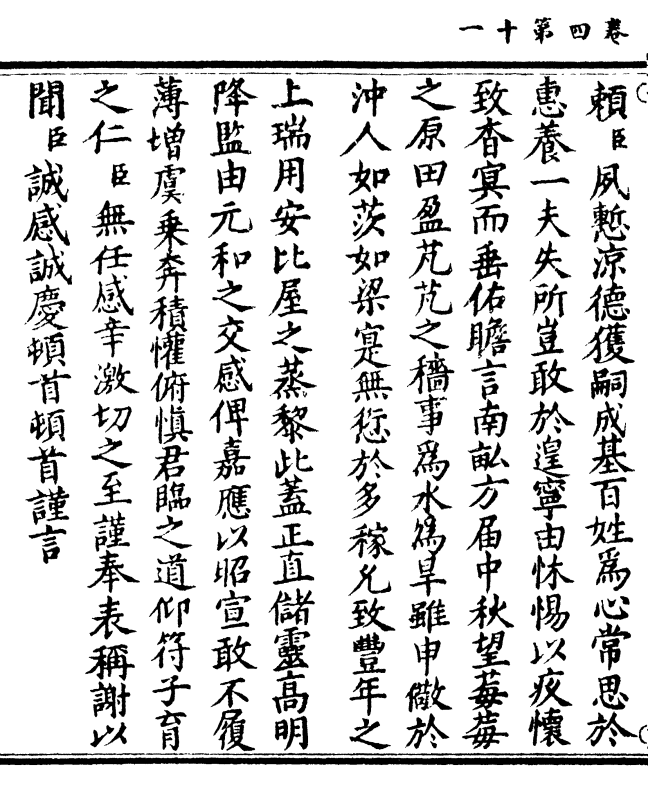 卷四第十一
賴臣夙慙涼德獲嗣成基百姓爲心常思於
惠養一夫失所豈敢於遑寧由怵惕以疚懷
致杳冥而垂佑瞻言南畝方届中秋望莓莓
之原田盈芃芃之穡事爲水爲旱雖申儆於
沖人如茨如梁寔無愆於多稼允致豐年之
上瑞用安比屋之蒸黎此蓋正直儲靈高明
降監由元和之交感俾嘉應以昭宣敢不履
薄增虞乗奔積懼俯愼君臨之道仰符子育
之仁臣無任感幸激切之至謹奉表稱謝以
聞臣誠感誠慶頓首頓首謹言